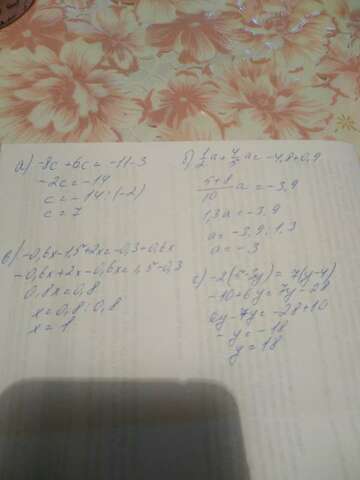 а) -8c + 6c = -11-3
-2c = -14
c = -14 : (-2)
c = 7
б) 1/2 a + 4/5 a = -4,8+0,9
5+8/10 a = -3,9
1,3a = -3,9
a = -3,9 : 1,3
a = -3
в) -0,6x-1,5+2x = -0,3+0,6x
-0,6x+2x-0,6x = 1,5-0,3
0,8x = 0,8
x = 0,8 : 0,8
x = 1
г) -2(5-3y) = 7(y-4)
-10+6y = 7y-28
6y-7y = -28+10
-y = -18
y = 18